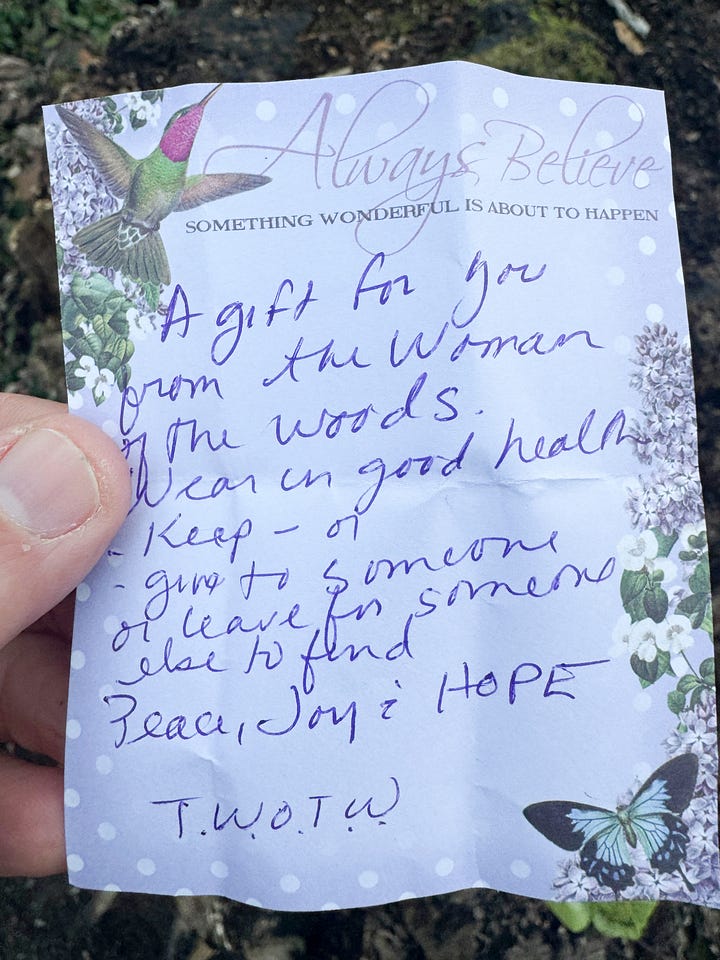 Always Believe
SOMETHING WONDERFUL IS ABOUT TO HAPPEN
A gift for you
from the Woman
of the woods.
Wear in good health
- Keep - or
- give to someone
or leave for someone
else to find
Peace, Joy & HOPE
T.W.O.T.W.